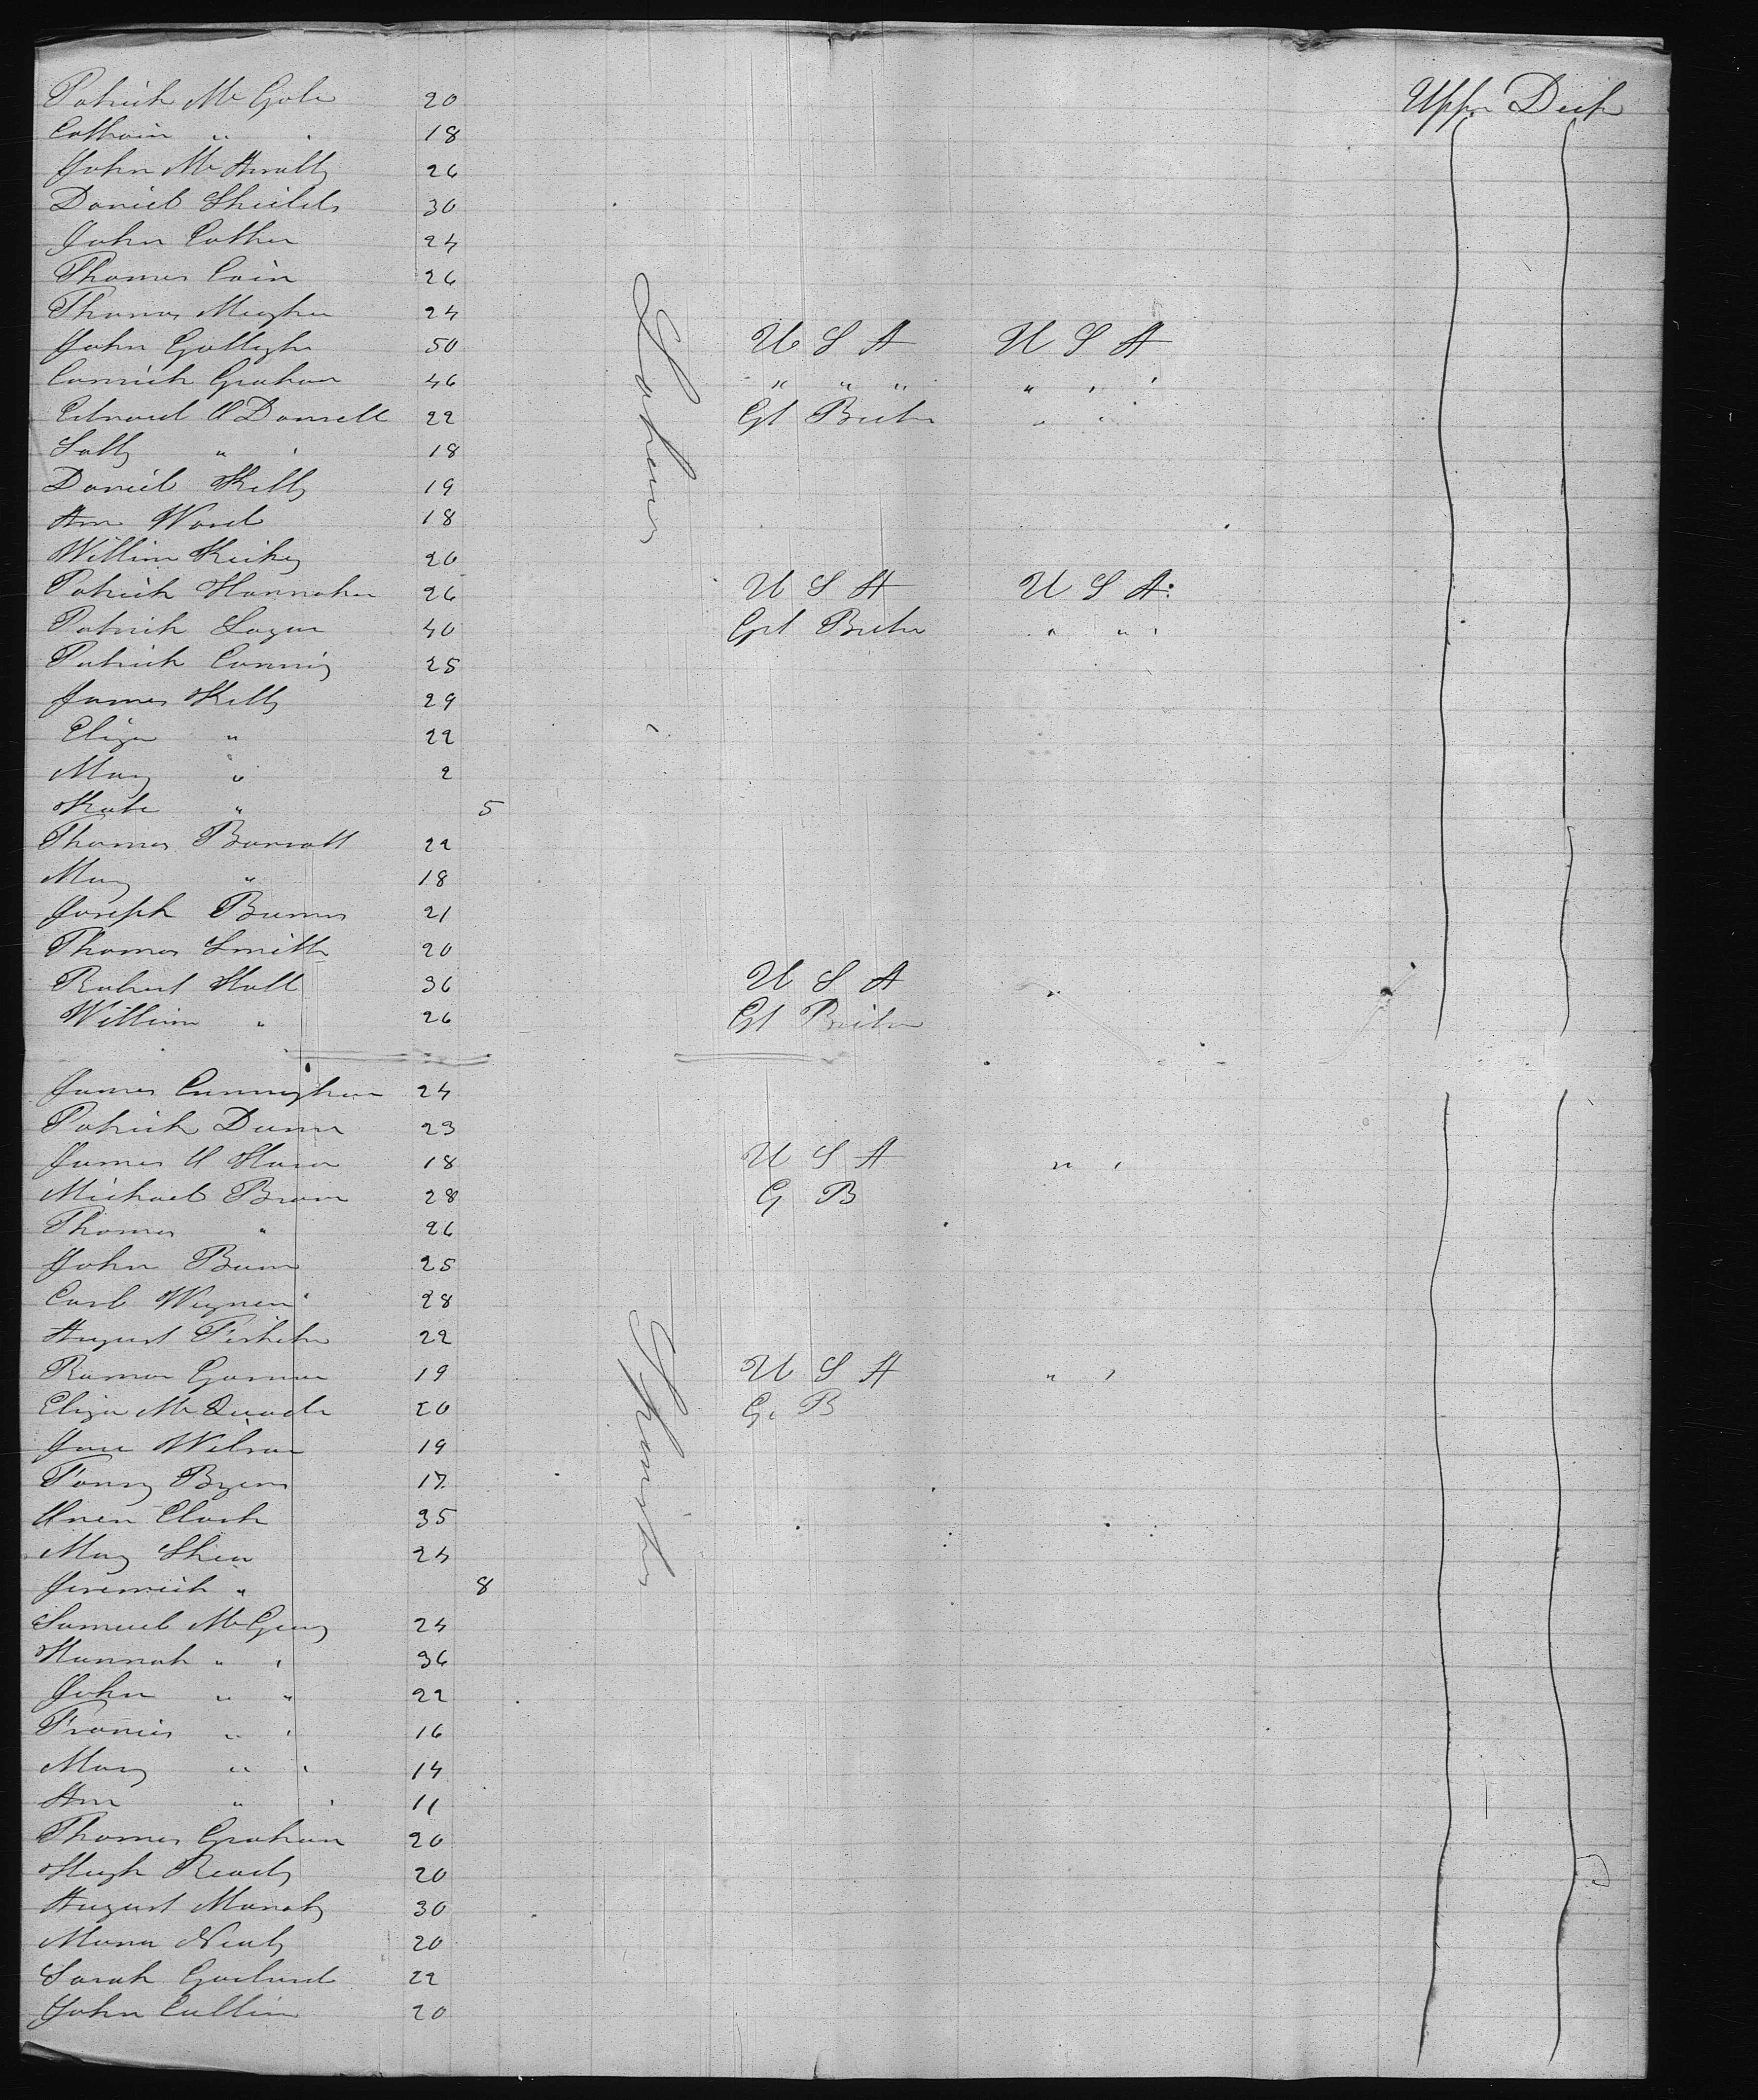 Upper Deck
Patrick McGole 20
Cathrin " " 18
John McAnally 26
Daniel Shields 30
John Cather 24
Thomas Cain 26
Thomas Meagher 24
John Gallagher 50 U S A U S A
Connick Graham 46 " " " " " "
Edward O'Donnell 22 Gt Britn " "
Sally " " 18
Daniel Kelly 19
Ann Ward 18
William Hickey 20
Patrick Hannaher 26 U S A U S A
Patrick Logan 40 Grt Britn " " "
Patrick Conning 25
James Kelly 29
Eliza " 22
Mary " 2
Kate " 5
Thomas Barratt 22
Mary " 18
Joseph Burns 21
Thomas Smith 20
Robert Hall 36 U S A "
William " 26 Gt Britn
Laborers
James Cunningham 24
Patrick Dunn 23
James O Hara 18 U S A " "
Michael Brown 28 G B
Thomas " 26
John Burn 25
Carl Wegnen 28
August 22
19 U S A " "
Eliza McQuade 20 G. B
Jane Wilson 19
Fanny Byers 17
Owen Clark 35
Mary Shea 24
Jeremiah " 8
Samuel McGeary 24
Hannah " " 36
John " " 22
Francis " " 16
Mary " " 14
Ann " " 11
Thomas Graham 20
Hugh Ready 20
August 30
20
Sarah Garland 22
John Cullin 20
Spinsters